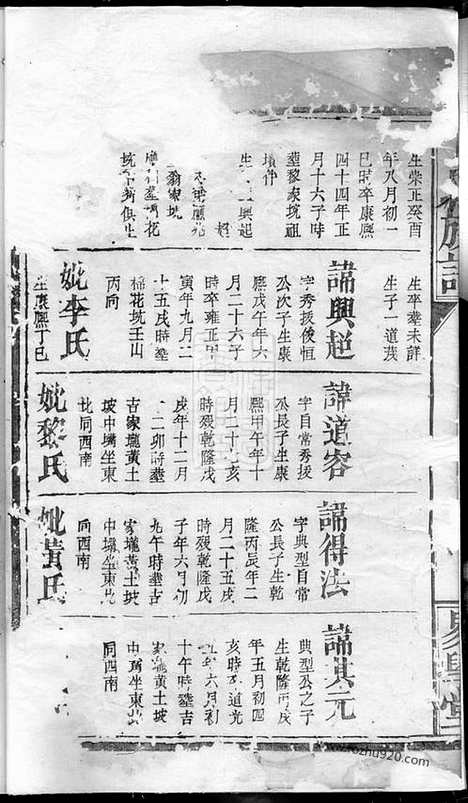 族譜
生崇正癸酉
年八月初一
巳時卒康熙
四十四年正
月十六子時
葬黎家坑祖
墳仲
生 興起
超
翁家坑
花
坑 俱生
生卒葬未詳
生子一道茂
諱興超
字秀拔俊恒
公次子生康
熙戊午年六
月二十六子
時卒雍正甲
寅年九月二
十五戌時葬
棉花坑壬山
丙向
妣李氏
生康熙丁巳
諱道容
字自常秀拔
公長子生康
熙甲午年十
月二十亥
時歿乾隆戊
戌年十二月
十二卯時葬
吉家壠黃土
坡中塅坐東
北向西南
妣黎氏
諱得法
字典型自常
公長子生乾
隆丙辰年二
月二十五戌
時歿乾隆戊
子年六月初
九午時葬吉
家壠黃土坡
中塅坐東北
向西南
妣黃氏
諱其元
典型公之子
生乾隆丙戌
年五月初四
亥時歿道光
年六月初
十午時葬吉
家壠黃土坡
中塅坐東北
向西南
www.fozhu920.com